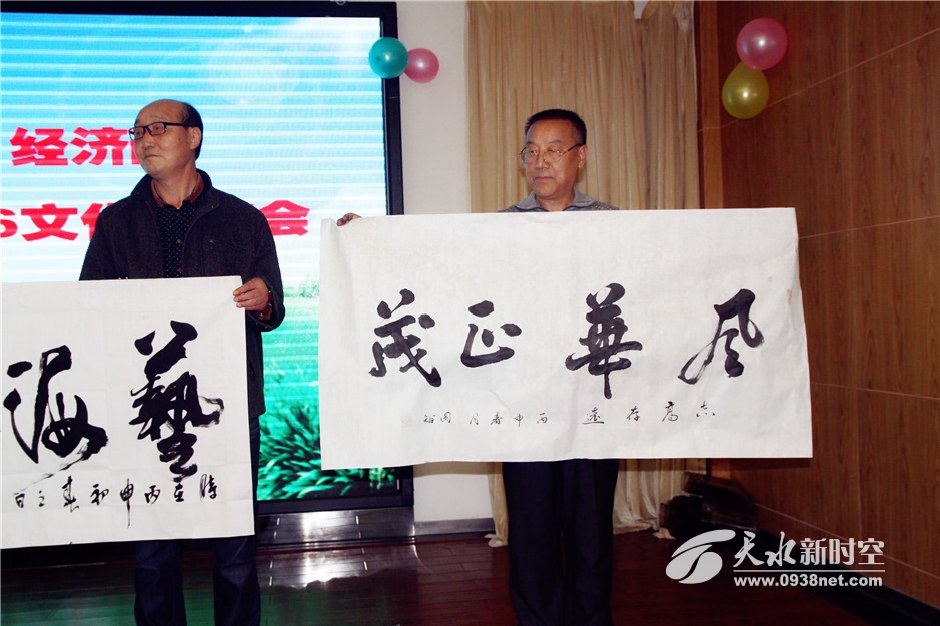 经济
文化 会
藝海
時在丙申初春之日
風華正茂
志高存遠 丙申春月 国裕
天水新时空
www.0938net.com